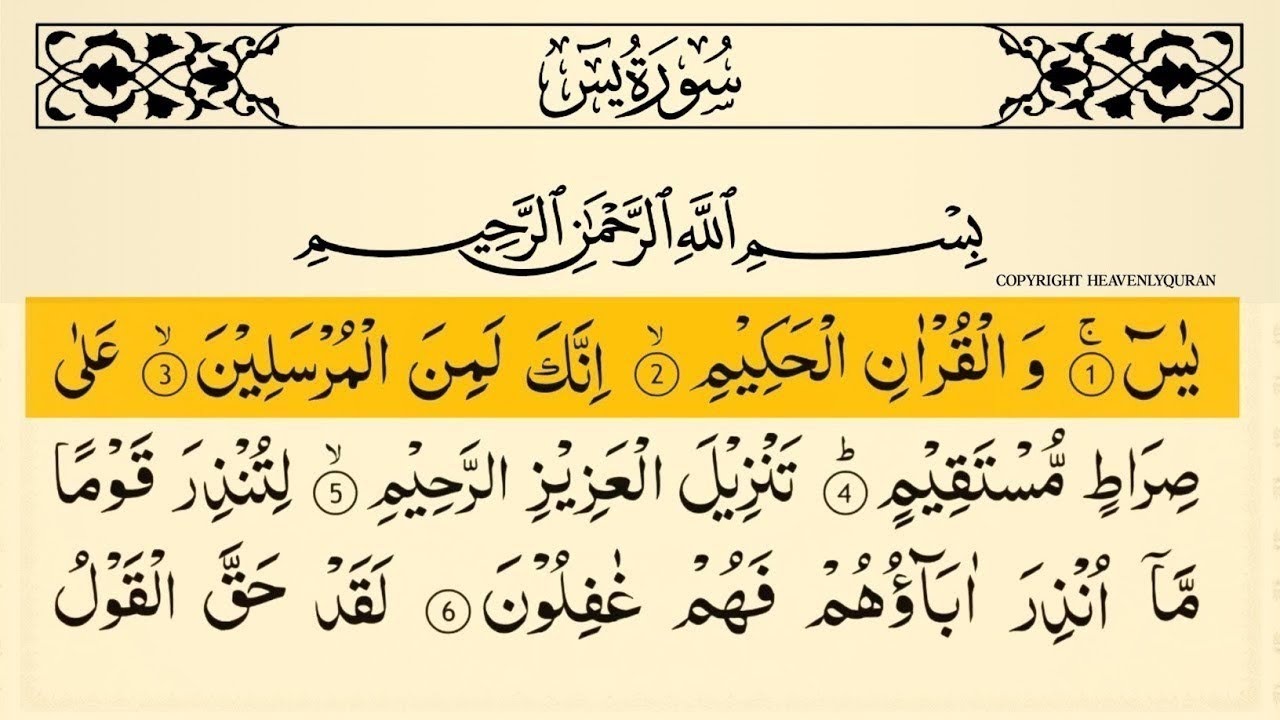 سُورَةُ يٰسٓ
بِسْمِ ٱللَّهِ ٱلرَّحْمَٰنِ ٱلرَّحِيمِ
COPYRIGHT HEAVENLYQURAN
يٰسٓ ۚ ① وَ الْقُرْاٰنِ الْحَكِيْمِ ۙ ② اِنَّكَ لَمِنَ الْمُرْسَلِيْنَ ۙ ③ عَلٰى
صِرَاطٍ مُّسْتَقِيْمٍ ؕ ④ تَنْزِيْلَ الْعَزِيْزِ الرَّحِيْمِ ۙ ⑤ لِتُنْذِرَ قَوْمًا
مَّاۤ اُنْذِرَ اٰبَآؤُهُمْ فَهُمْ غٰفِلُوْنَ ⑥ لَقَدْ حَقَّ الْقَوْلُ